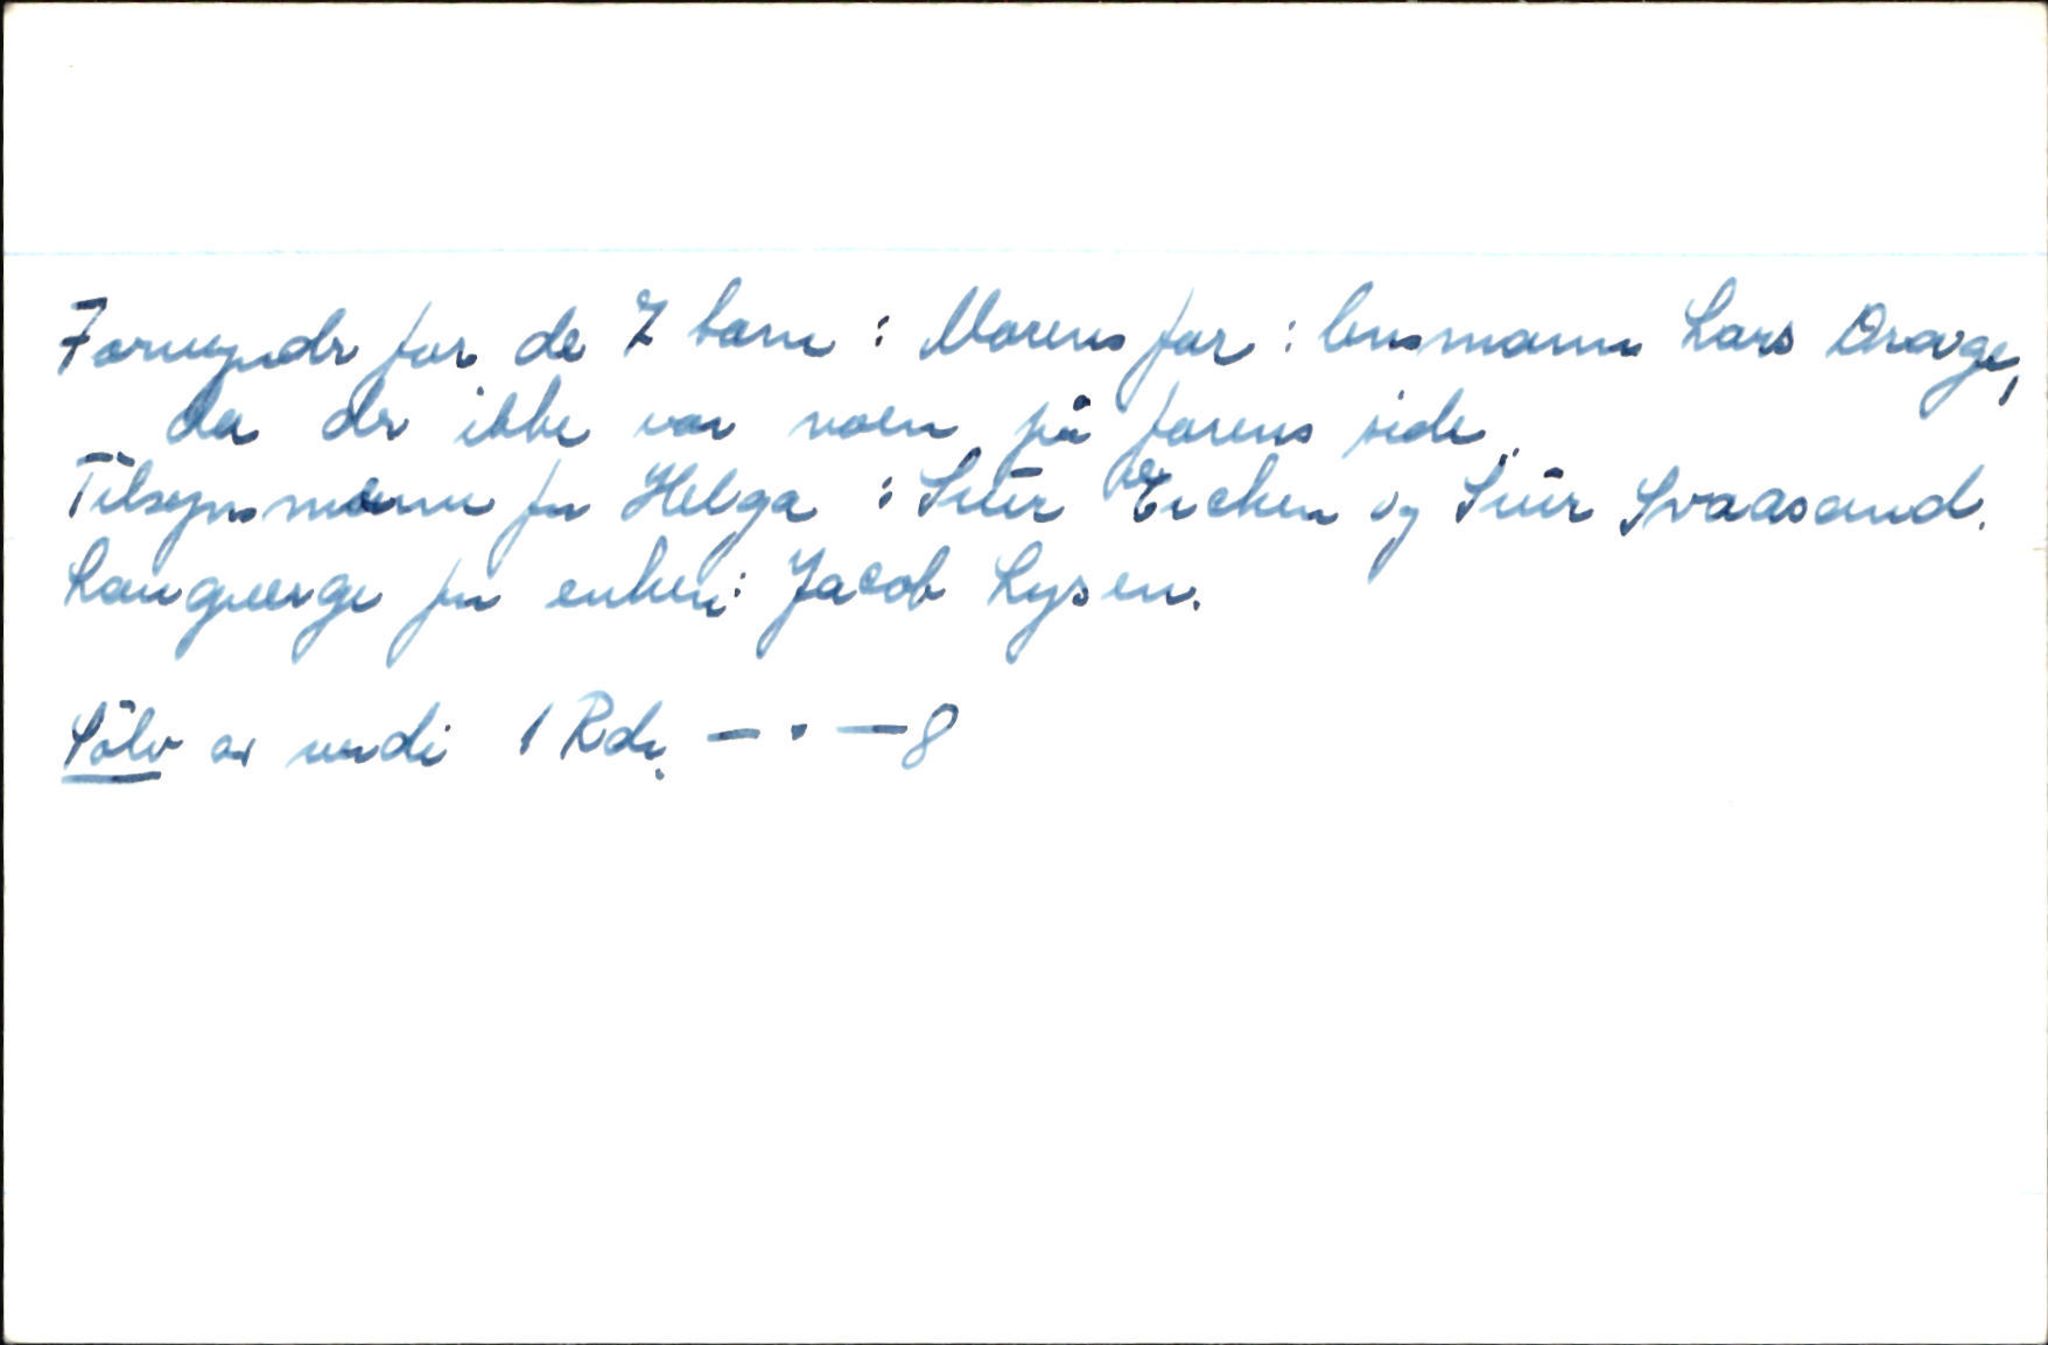 Formynder for de 2 barn : Morens far : lensmann Lars Drage,
da der ikke var noen på farens side.
Tilsynsmenn for Helga : Siur Eichen og Siur Svaasand.
Laugverge for enken: Jacob Lysen.
Sølv av verdi 1 Rdr. – . – 8